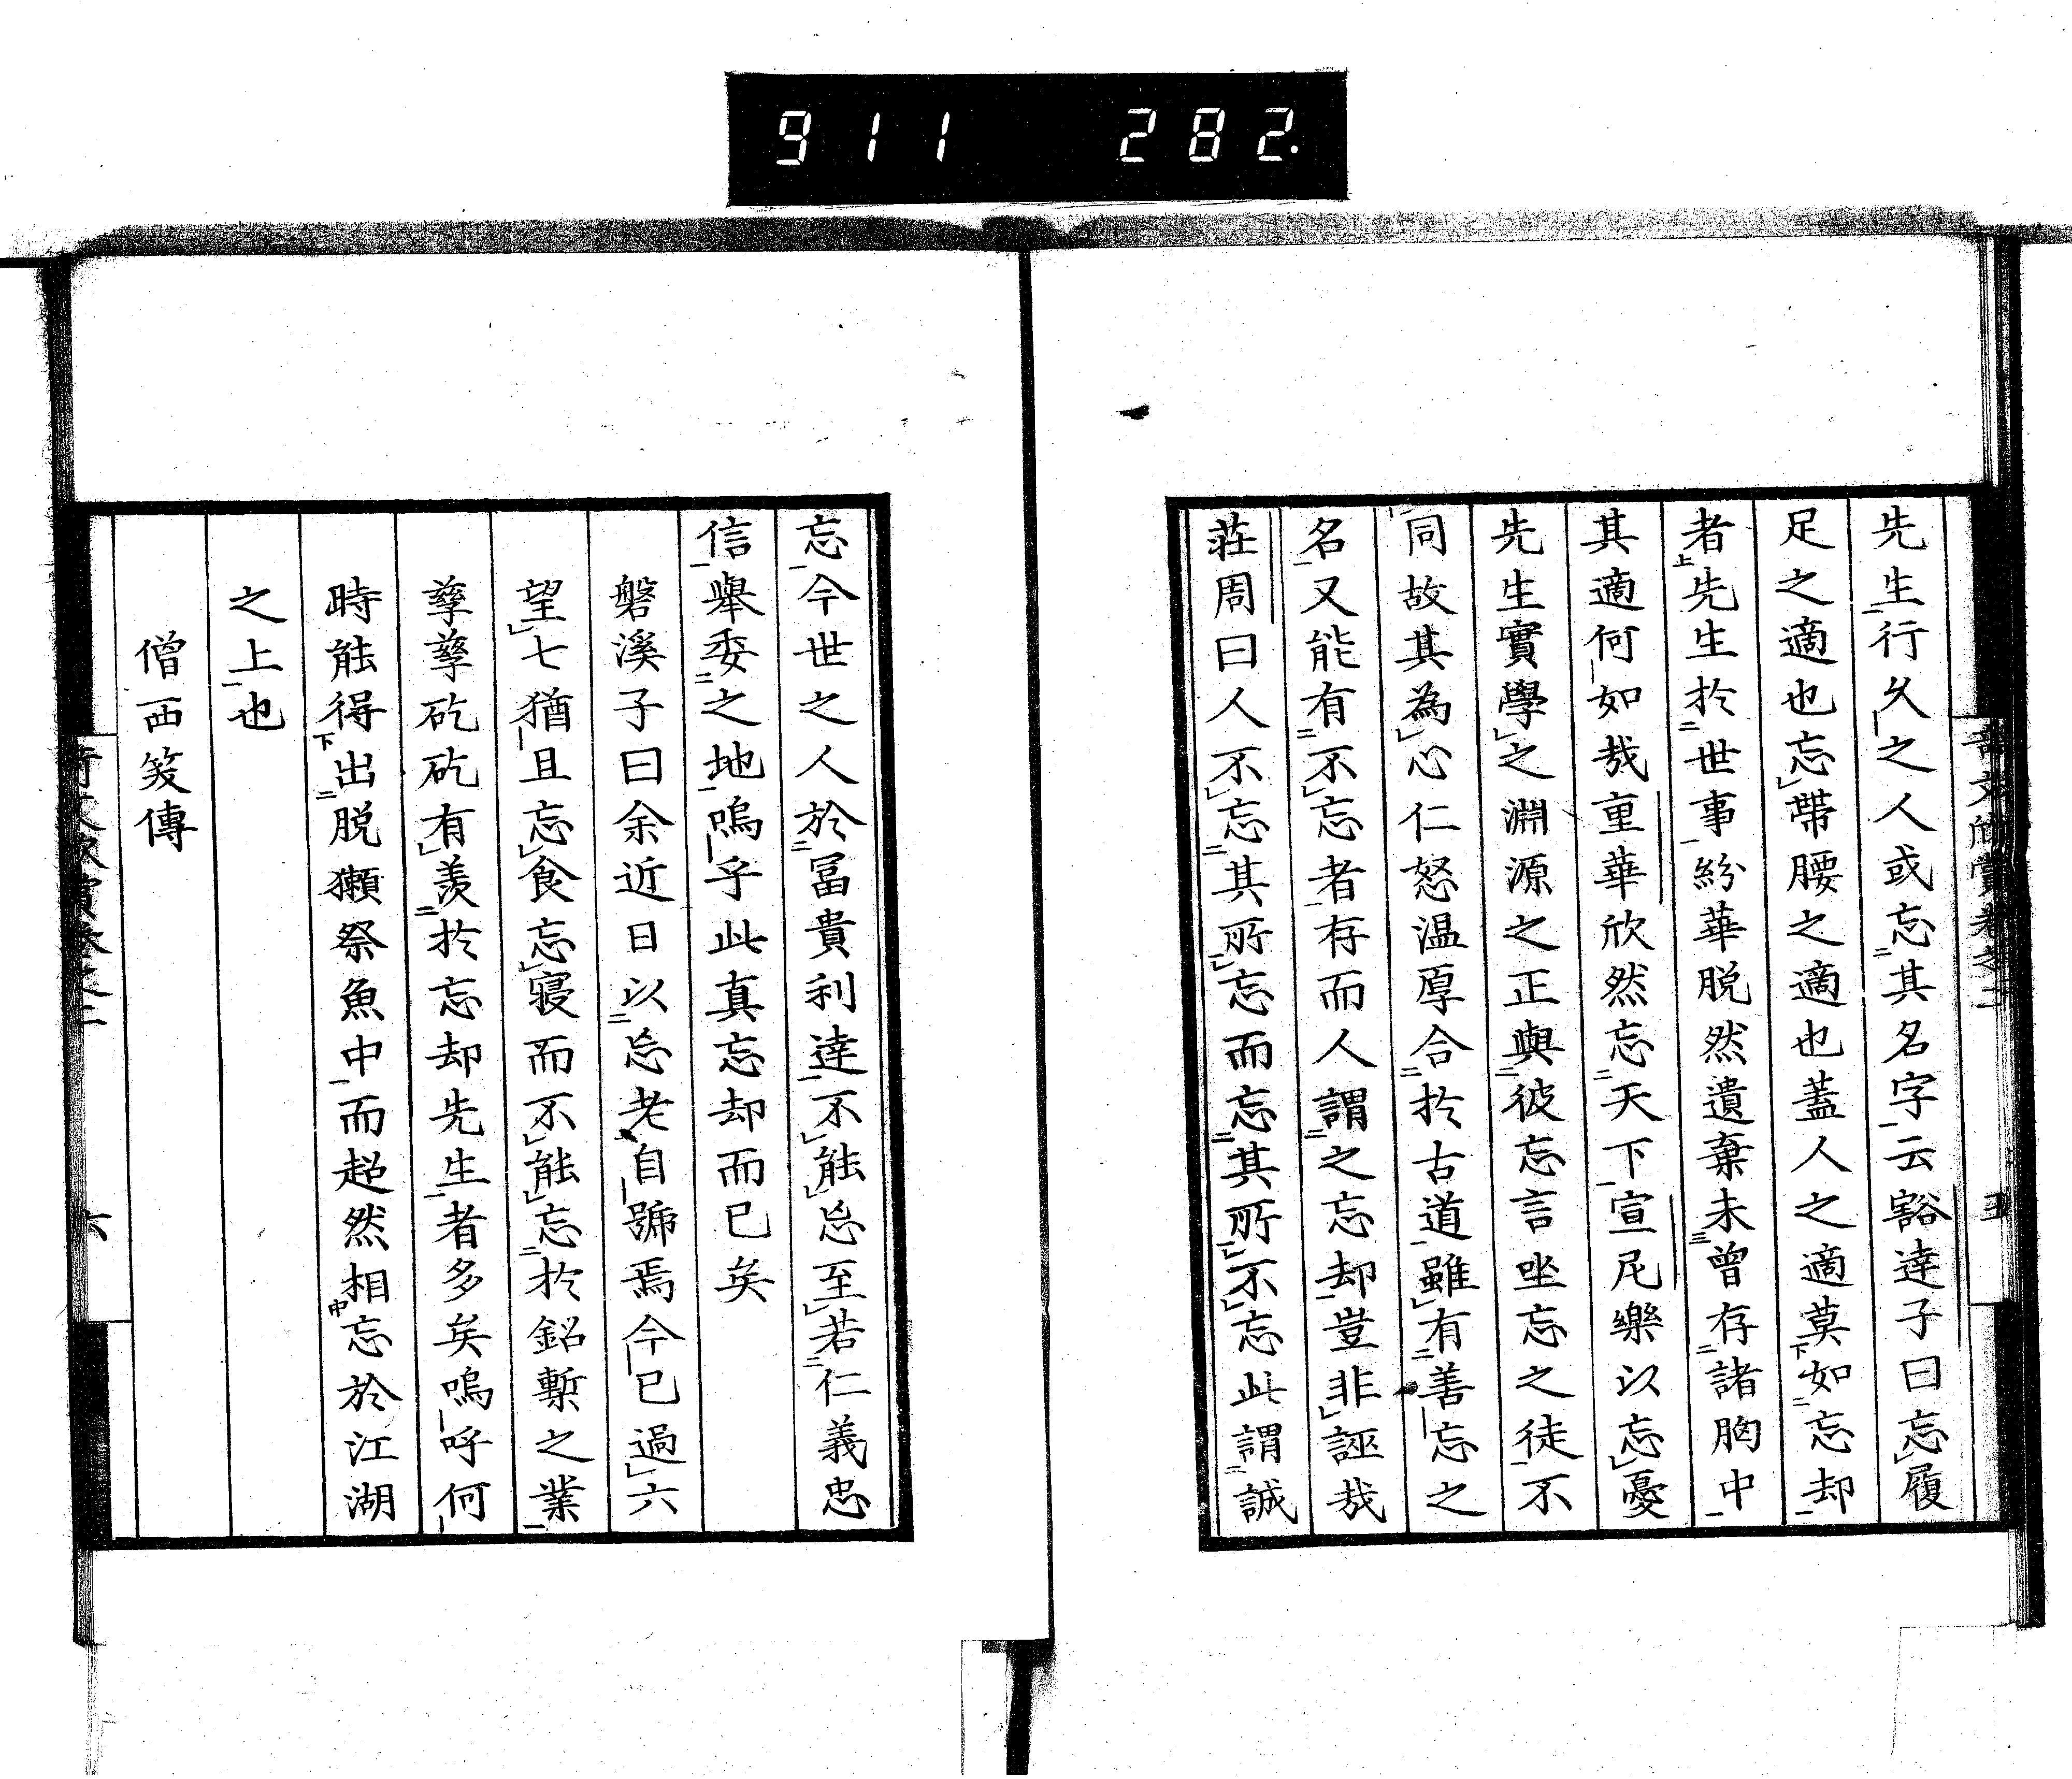 911 282.
先生行久之人或忘其名字云豁達子曰忘履
足之適也忘帶腰之適也蓋人之適莫如忘却
者先生於世事紛華脱然遺棄未曾存諸胸中
其適何如哉重華欣然忘天下宣尼樂以忘憂
先生實學之淵源之正與彼忘言坐忘之徒不
同故其為心仁恕温厚合於古道雖有善忘之
名又能有不忘者存而人謂之忘却豈非誣哉
莊周曰人不忘其所忘而忘其所不忘此謂誠
忘今世之人於冨貴利達不能忘至若仁義忠
信舉委之地嗚乎此真忘却而已矣
磐溪子曰余近日以忘老自號焉今已過六
望七猶且忘食忘寝而不能忘於鉛槧之業
孳孳矻矻有羨於忘却先生者多矣嗚呼何
時能得出脱獺祭魚中而超然相忘於江湖
之上也
僧西笈傳
六